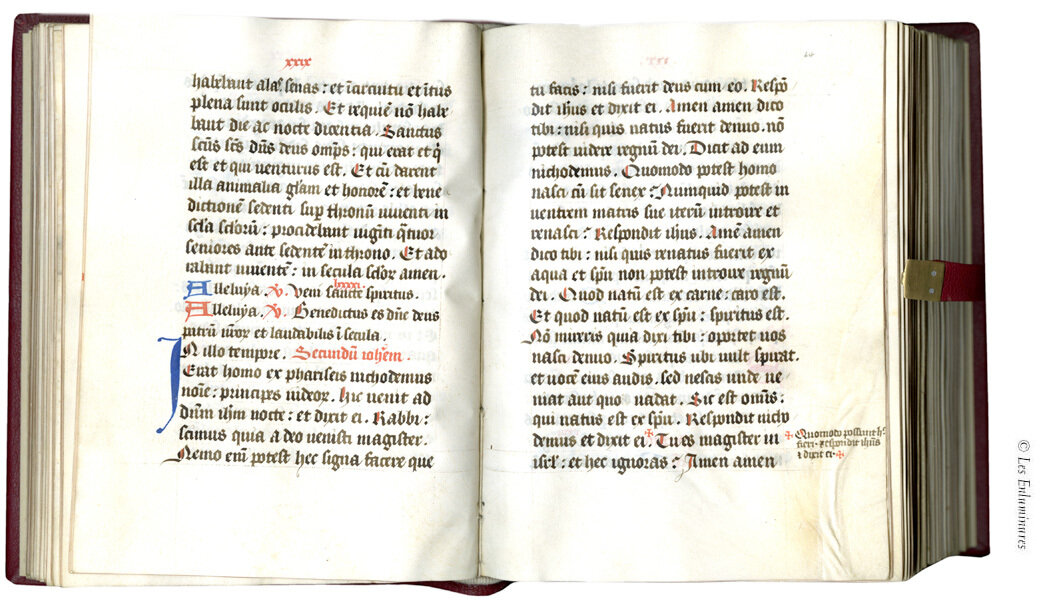 xxix
habebant alas senas : et īcircuitu et ītus
plena sunt oculis . Et requiē nō habe
bant die ac nocte dicentia . Sanctus
scūs scūs dūs deus omps : qui erat et q̄
est et qui uenturus est . Et cū darent
illa animalia glam et honorē : et bene
dictionē sedenti sup thronū uiuenti in
scla sclorū : procidebant uiginti q̄tuor
seniores ante sedentē in throno . Et ado
rabant uiuentē : in secula sclor amen .
lxxxi
Alleluya . V . Veni sancte spiritus .
Alleluya . V . Benedictus es dūe deus
patrū nror et laudabilis ī secula .
In illo tempore . Secundū iohem .
Erat homo ex phariseis nichodemus
noīe : princeps iudeor . Hic uenit ad
dnm ihm nocte : et dixit ei . Rabbi :
scimus quia a deo uenisti magister .
Nemo enī potest hec signa facere que
xxx
tu facis : nisi fuerit deus cum eo . Respō
dit ihus et dixit ei . Amen amen dico
tibi : nisi quis natus fuerit denuo . nō
potest uidere regnū dei . Dicit ad eum
nichodemus . Quomodo potest homo
nasci cū sit senex ? Numquid potest in
uentrem matris sue iterū introire et
renasci ? Respondit ihus . Amē amen
dico tibi : nisi quis renatus fuerit ex
aqua et spū non potest introire regnū
dei . Quod natū est ex carne : caro est .
Et quod natū est ex spū : spiritus est .
Nō mireris quia dixi tibi : oportet uos
nasci denuo . Spiritus ubi uult spirat .
et uocē eius audis . sed nescis unde ue
niat aut quo uadat . Sic est omīs :
qui natus est ex spū . Respondit nicho
demus et dixit ei . Tu es magister in
isrl : et hec ignoras ? Amen amen
Quomodo possunt h
fieri . respondit ihus
& dixit ei .
© Les Enluminures